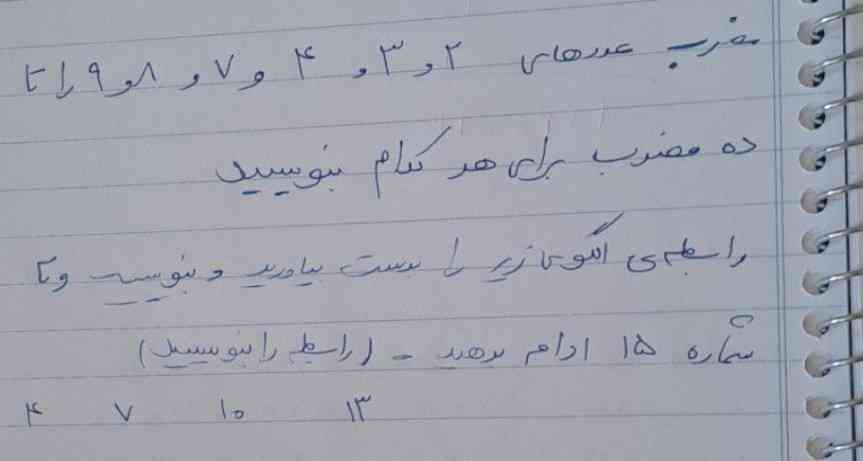 مضرب عددهای ۲ و ۳ و ۴ و ۷ و ۸ و ۹ را تا
ده مضرب برای هر کدام بنویسید
رابطه‌ی الگوی زیر را بدست بیاورید و بنویسید و تا
شماره ۱۵ ادامه بدهید - (رابطه را بنویسید)
۴ ۷ ۱۰ ۱۳